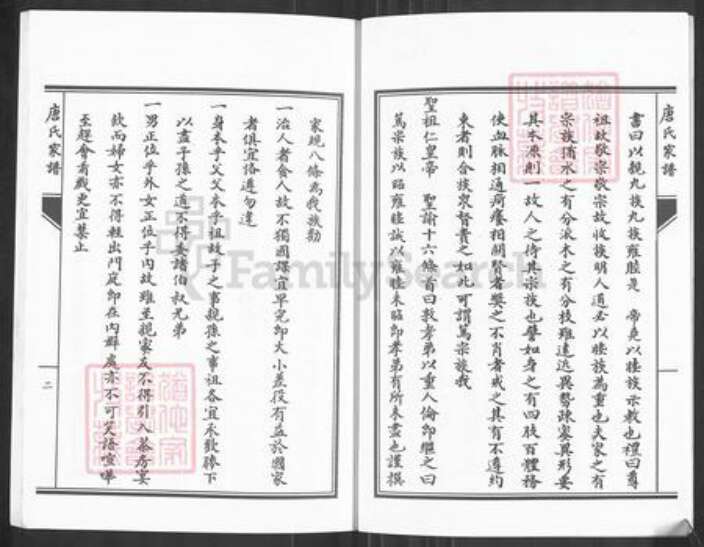 唐氏家譜
書曰以親九族九族雍睦是 帝堯以睦族示教也禮曰尊
祖故敬宗敬宗故收族明人道必以睦族為重也夫家之有
宗族猶水之有分派木之有分枝雖遠近異勢疎密異形要
其本原則一故人之待宗族也譬如身之有四肢百體務
使血脉相通疴癢相關賢者獎之不肖者戒之其有不遵約
束者則合族眾督責之如此可謂篤宗族哉
聖祖仁皇帝 聖諭十六條首曰敦孝弟以重人倫即繼之曰
篤宗族以昭雍睦誠以雍睦未昭即孝弟有所未盡也謹撰
家規八條為我族勖
一治人者食人故不獨國課宜早完即大小差役有益於國家
者俱宜恪遵勿違
一身本乎父父本乎祖故子之事親孫之事祖各宜承歡膝下
以盡子孫之道不得委諸伯叔兄弟
一男正位乎外女正位乎內故雖至親密友不得引入茶房宴
飲而婦女亦不得輕出門庭即在內群處亦不可笑語喧嘩
至經會看戲更宜禁止
唐氏家譜
二
FamilySearch